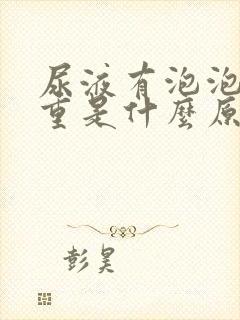 尿液有泡泡
重是什麼原
彭昊